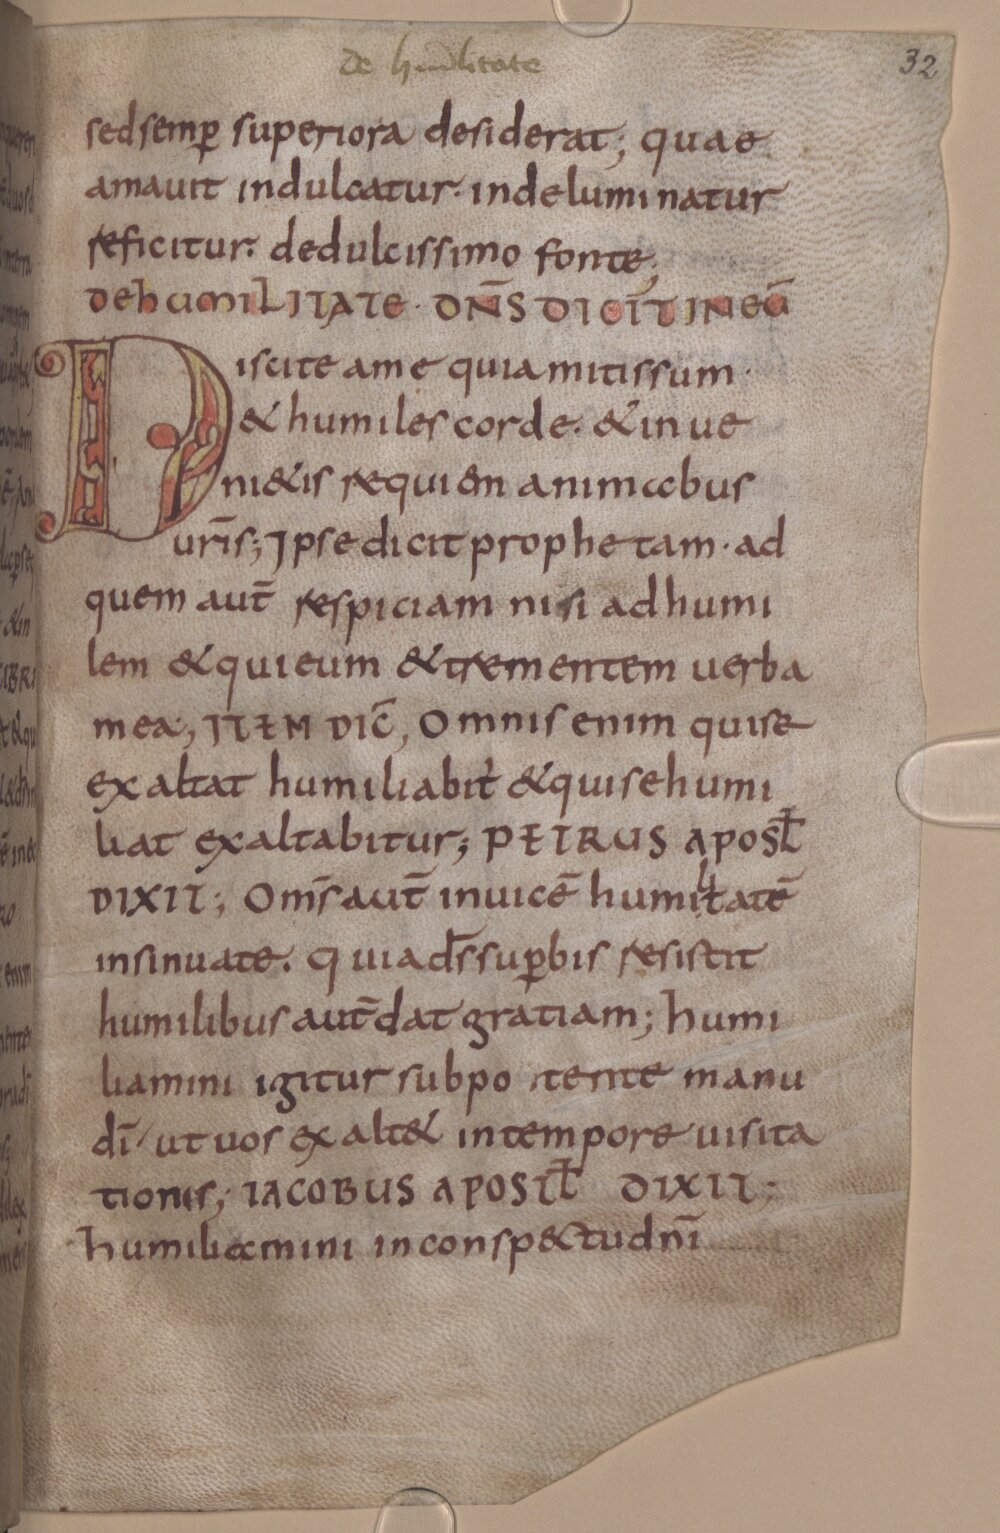 de humilitate
32
sed semp̲ superiora desiderat; quae
amauit indulcatur. indeluminatur
reficitur. dedulcissimo fonte,
DE hUMILITATE · DN̄S DICIT̄ IN EŪ
Discite ame quia mitis sum·
& humiles corde. & inue
ni&is requiem animabus
ur̄is; Ipse dicit prophetam· ad
quem aut̄ respiciam nisi ad humi
lem & quieum & trementem uerba
mea; ITEM DIC̄, Omnis enim quise
exaltat humiliabit̓ & quise humi
liat exaltabitur; PETRUS APOSTL̄
DIXIT; Om̄s aut̄ inuicē humilitatē
insinuate. Quia d̄s sup̲bis resistit
humilibus aut̄ dat gratiam; humi
liamini igitur sub potente manu
dī ut uos exalt& intempore uisita
tionis; IACOBUS APOSTL̄ DIXIT;
humiliamini inconsp&tu dn̄i